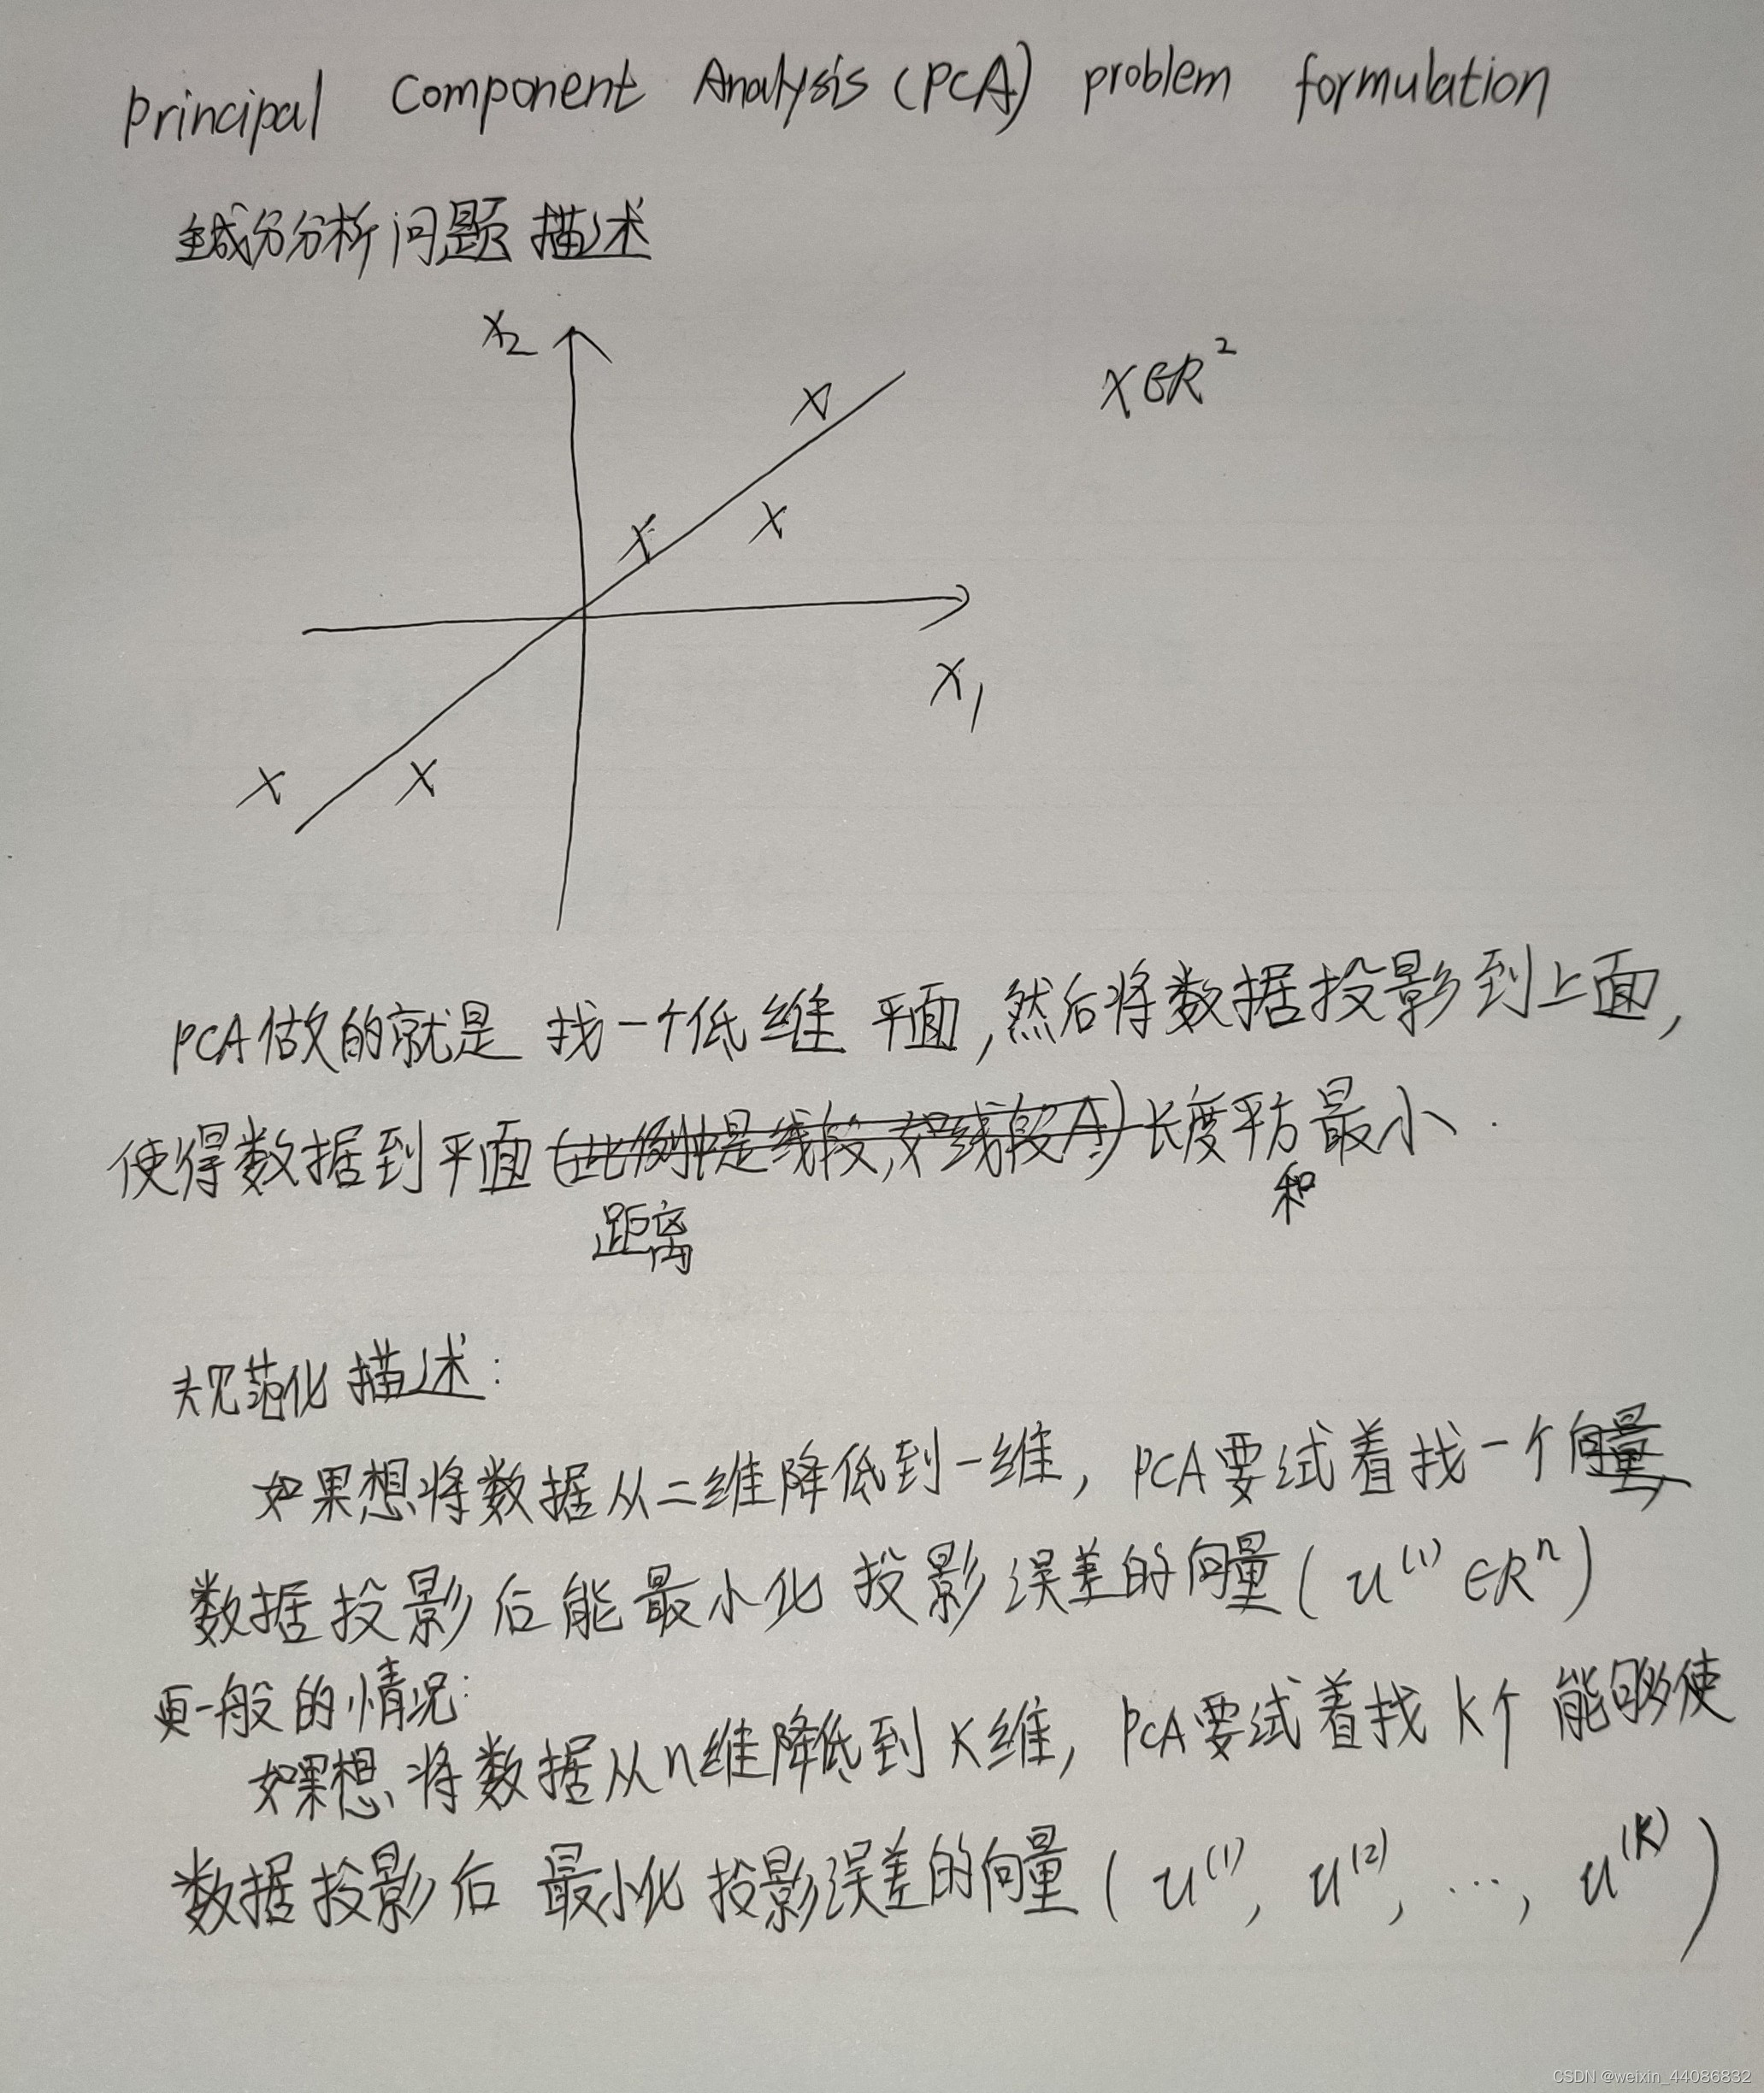 Principal Component Analysis (PCA) problem formulation
主成分分析问题描述
x2
X∈R²
x1
PCA做的就是找一个低维平面,然后将数据投影到上面,
使得数据到平面(此例中是线段,如线段A)长度平方最小.
距离 和
规范化描述:
如果想将数据从二维降低到一维, PCA要试着找一个向量,
数据投影后能最小化投影误差的向量(u⁽¹⁾∈Rⁿ)
更一般的情况:
如果想将数据从n维降低到K维, PCA要试着找K个能够使
数据投影后最小化投影误差的向量(u⁽¹⁾, u⁽²⁾, ..., u⁽ᴷ⁾)
CSDN @weixin_44086832